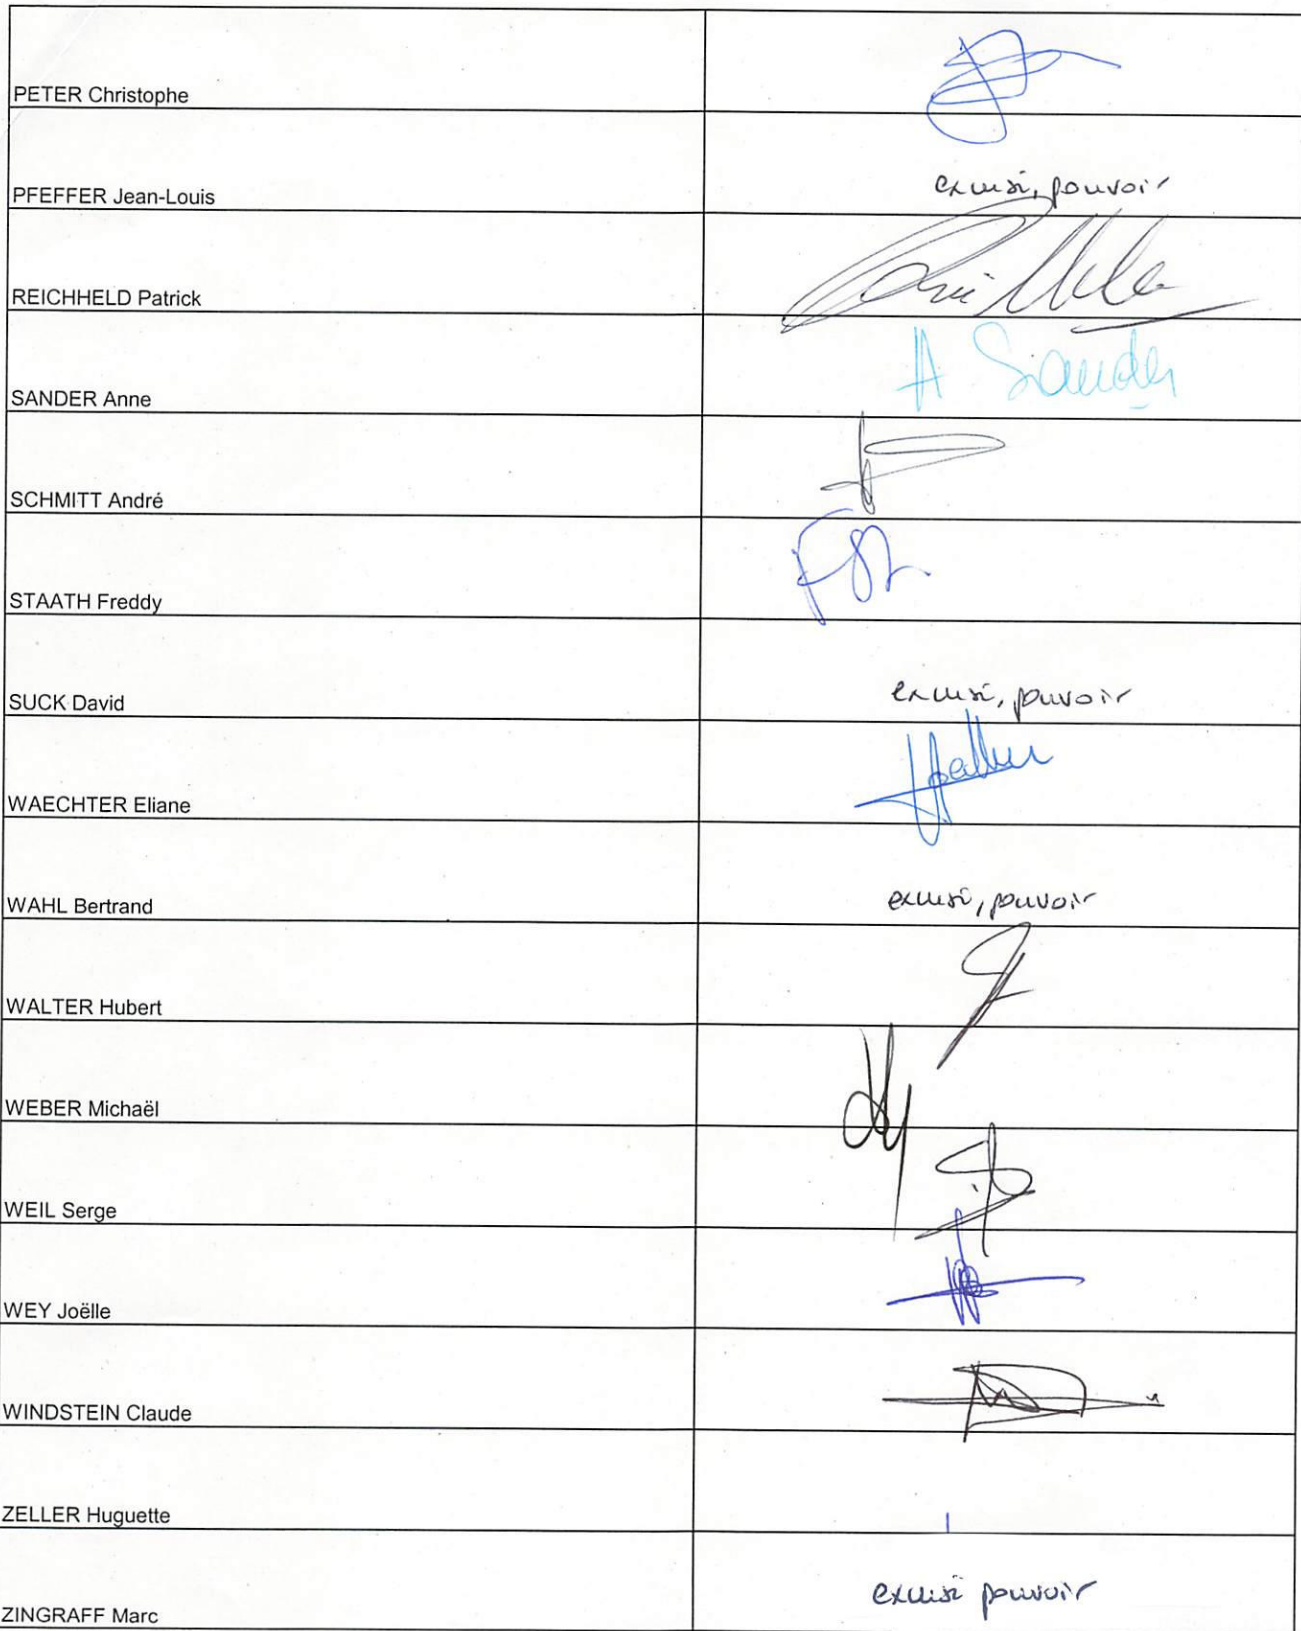 PETER Christophe
PFEFFER Jean-Louis excusé, pouvoir
REICHHELD Patrick
SANDER Anne A Sander
SCHMITT André
STAATH Freddy
SUCK David excusé, pouvoir
WAECHTER Eliane
WAHL Bertrand excusé, pouvoir
WALTER Hubert
WEBER Michaël
WEIL Serge
WEY Joëlle
WINDSTEIN Claude
ZELLER Huguette
ZINGRAFF Marc excusé pouvoir